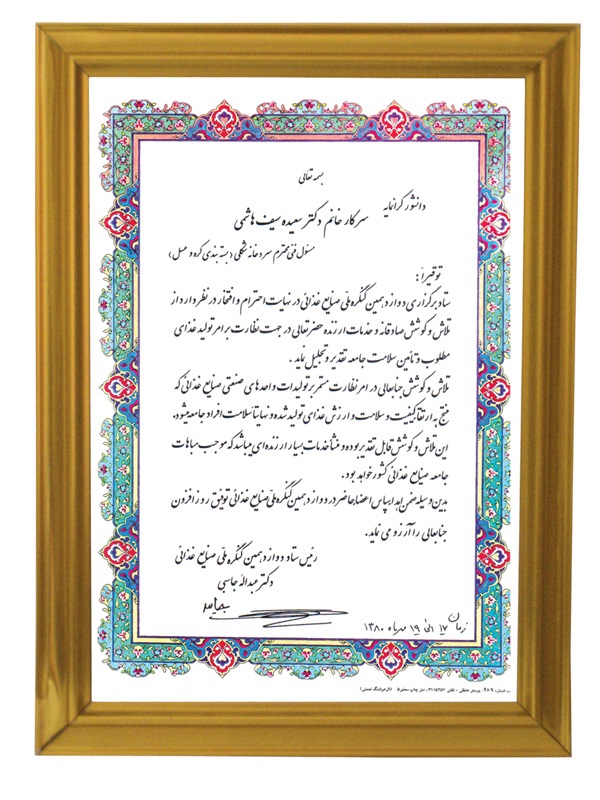 بسمه تعالی
دانشور گرانمایه
سرکار خانم دکتر سعیده سیف هاشمی
مسئول فنی محترم سردخانه شکلی (بسته بندی کره و عسل)
توقیراً :
ستاد برگزاری دوازدهمین کنگره ملی صنایع غذائی در نهایت احترام و افتخار در نظر دارد از
تلاش و کوشش صادقانه و خدمات ارزنده حضرتعالی در جهت نظارت بر امر تولید غذای
مطلوب و تأمین سلامت جامعه تقدیر و تجلیل نماید .
تلاش و کوشش جنابعالی در امر نظارت مستمر بر تولیدات واحدهای صنعتی صنایع غذائی که
منتج به ارتقا کیفیت و سلامت و ارزش غذای تولید شده و نهایتا سلامت افراد جامعه میشود.
این تلاش و کوشش قابل تقدیر بوده و منشأ خدمات بسیار ارزنده ای میباشد که موجب مباهات
جامعه صنایع غذائی کشور خواهد بود.
بدین وسیله ضمن اهداء سپاس اعضا حاضر در دوازدهمین کنگره ملی صنایع غذائی توفیق روزافزون
جنابعالی را آرزو می نماید.
رئیس ستاد دوازدهمین کنگره ملی صنایع غذائی
دکتر عبدالله جاسبی
زمان ۱۷ الی ۱۹ مهرماه ۱۳۸۰